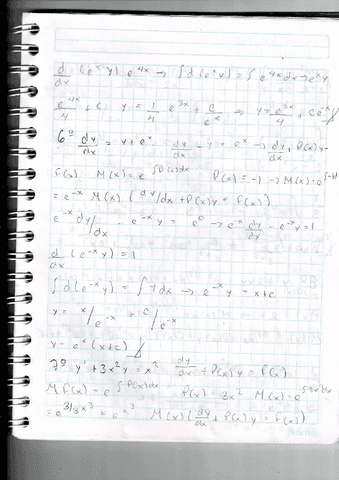 d/dx (e^x y) e^4x → ∫ d(e^x y) = ∫ e^4x dx → e^x y
e^4x/4 + c   y = 1/4 e^3x + c/e^x ⇒ y = e^3x/4 + Ce^-x //
6º dy/dx = y + e^x   dy/dx - y = e^x → dy/dx + P(x)y =
f(x)   M(x) = e^∫P(x)dx   P(x) = -1 → M(x) = e^∫-1dx
= e^-x   M(x) (dy/dx + P(x)y = f(x))
e^-x dy/dx - e^-x y = e^0 → e^-x dy/dx - e^-x y = 1
d/dx (e^-x y) = 1
∫ d(e^-x y) = ∫ 1 dx → e^-x y = x + c
y = x/e^-x + c/e^-x
y = e^x (x+c) //
7º y' + 3x^2 y = x^2   dy/dx + P(x)y = f(x)
M(x) = e^∫P(x)dx   P(x) = 3x^2   M(x) = e^∫3x^2dx
= e^3/3x^3 = e^x^3   M(x) (dy/dx + P(x)y = f(x))